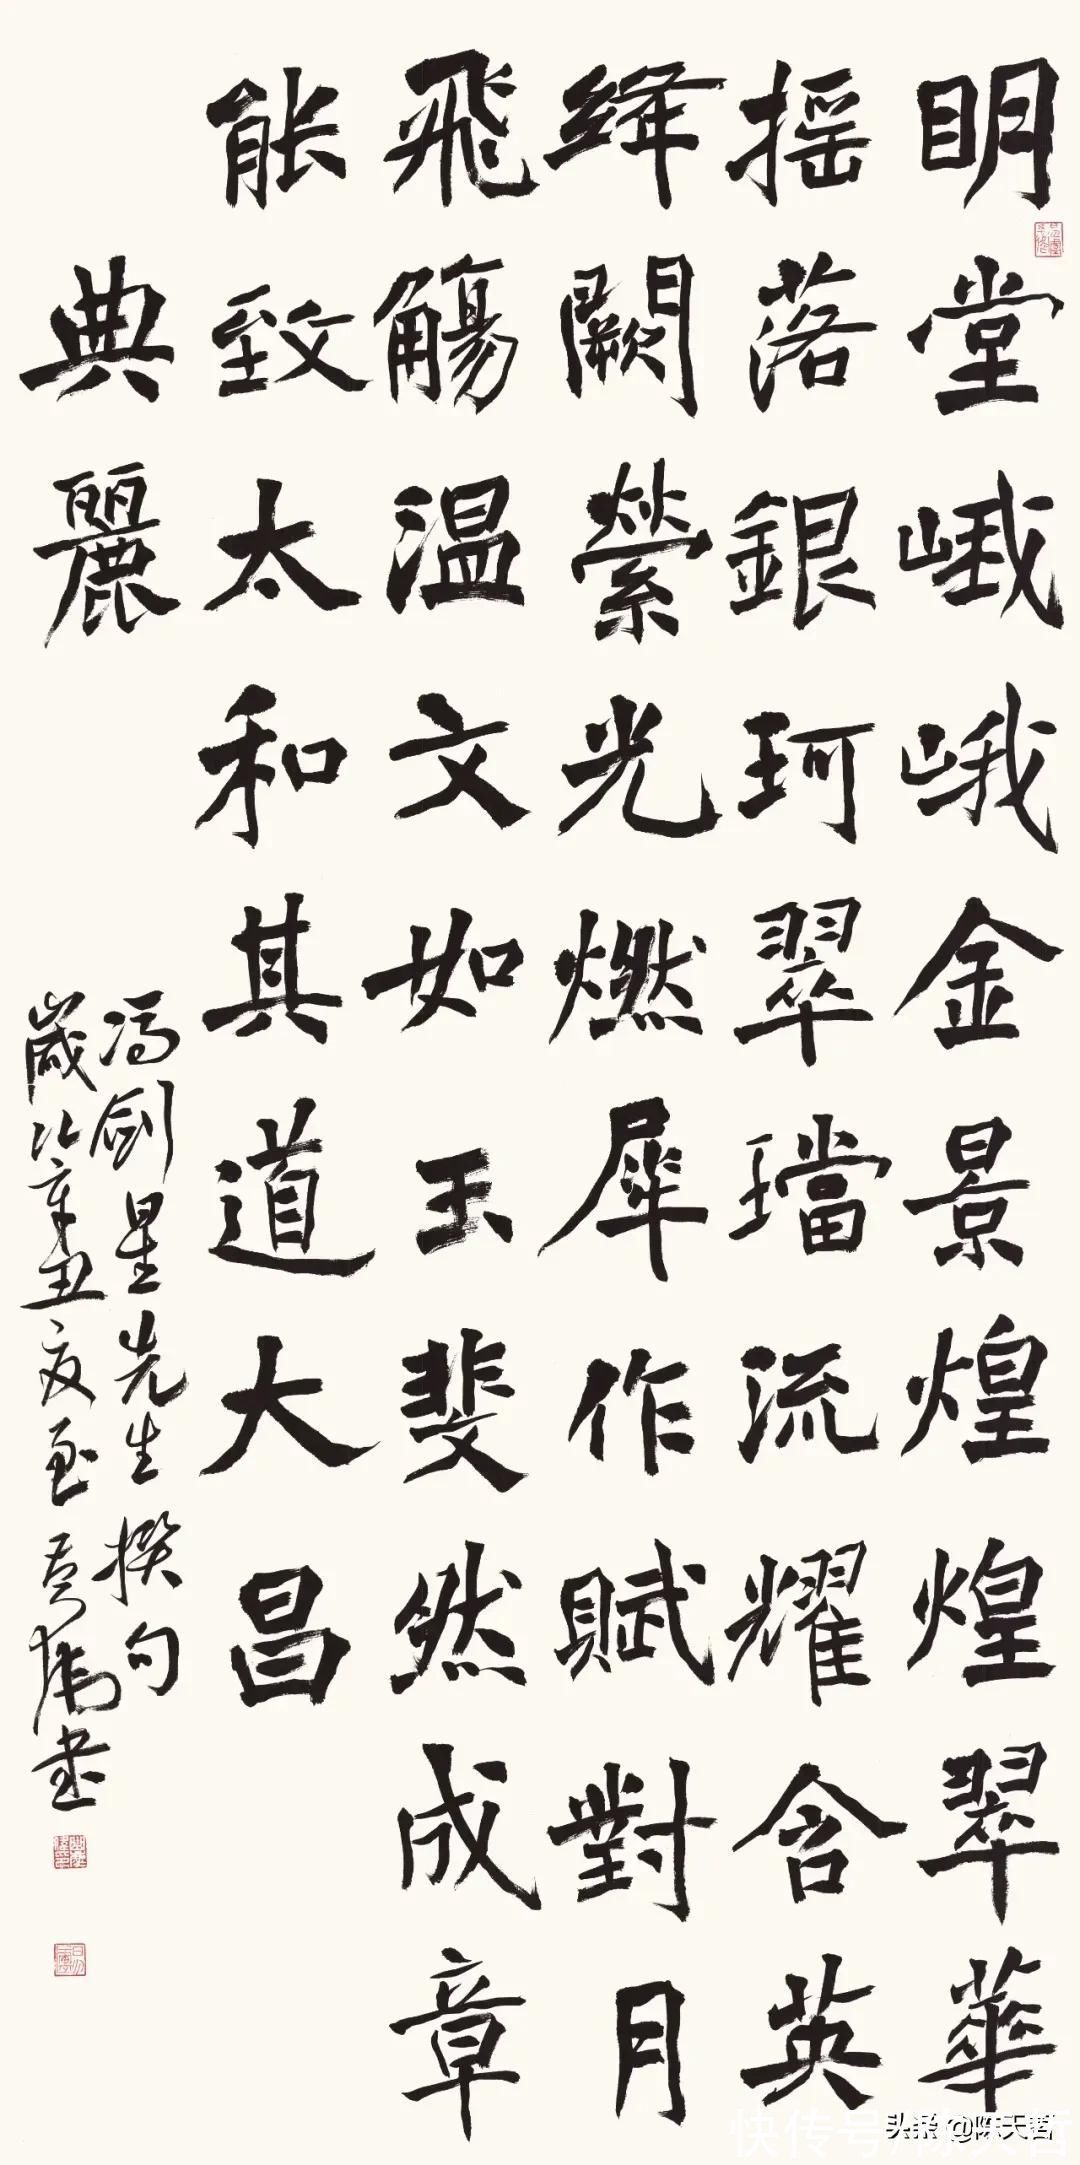 明堂峨峨金景煌煌翠華
摇落銀珂翠璫流耀含英
絳闕縈光燃犀作賦對月
飛觴温文如玉斐然成章
能致太和其道大昌
典麗
冯剑星先生撰句
歲次辛丑夏至書
快传号/陈天哲
头条 @陈天哲